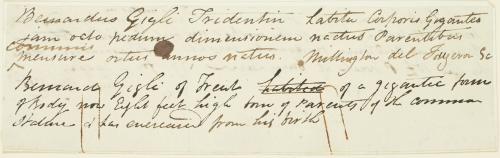 Bernardus Gigli Tridentin habitu Corporis Gigantea
Jam octo pedum dimensionem nactus Parentibus
communis
mensuræ ortus annos natus. Millington del
Bernard Gigli of Trent habited of a gigantic form
of Body, now Eight feet high born of Parents of the common
Stature & has encreased from his birth